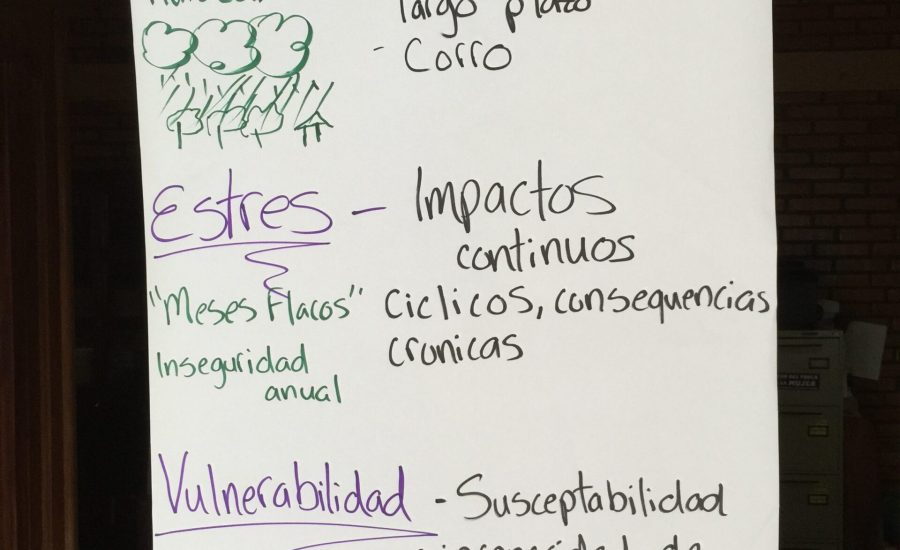 largo plazo
- Corro
Estres - Impactos
continuos
"Meses Flacos" Ciclicos, consequencias
Inseguridad cronicas
anual
Vulnerabilidad - Susceptabilidad